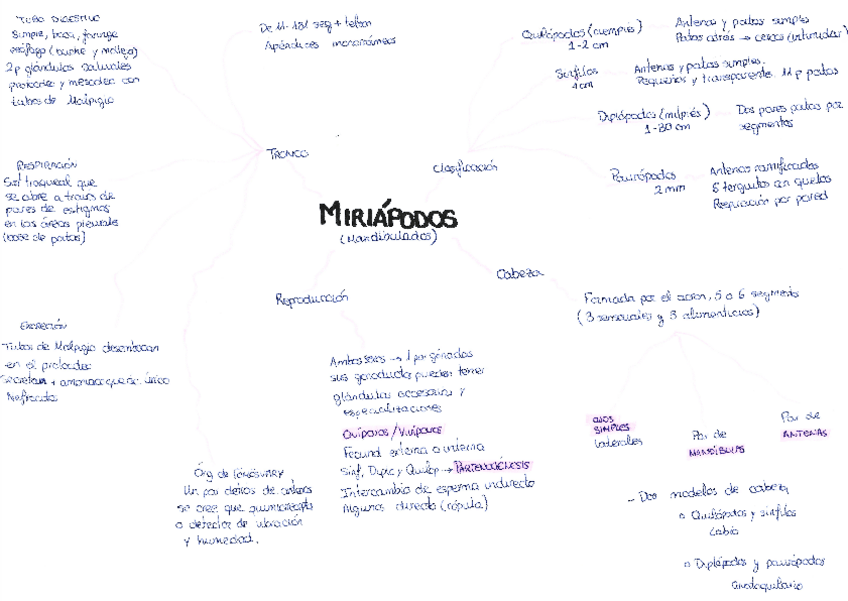 TUBO DIGESTIVO
Simple, boca, faringe
esófago (buche y molleja)
2p glándulas salivales
proctodeo y mesodeo con
tubos de Malpigio
De 11-181 seg + telson
Apéndices monorrámeos
Quilópodos (ciempiés)
1-2 cm
Antenas y patas simples
Patas atrás → cercos
Sínfilos
1cm
Antenas y patas simples.
Pequeños y transparente. 11p patas
Diplópodos (milpiés)
1-30 cm
Dos pares patas por
segmentos
Paurópodos
2mm
Antenas ramificadas
6 terguitos en quetas
Respiración por pared
TRONCO
Clasificación
MIRIÁPODOS
(Mandibulados)
RESPIRACIÓN
Sist traqueal que
se abre a través de
pares de estigmas
en las áreas pleurales
(base de patas)
Cabeza
Formada por el acron, 5 o 6 segments
(3 sensoriales y 3 alimenticios)
Reproducción
EXCRECIÓN
Tubos de Malpigio desembocan
en el proctodeo
Secretan + amoniaco que ác. úrico
Nefridios
Ambos sexos → 1 par gónadas
sus gonoductos pueden tener
glándulas accesorias y
especializaciones
Ovíparos/Vivíparos
Fecund externa o interna
Sinf, Diplo y Quilop → PARTENOGÉNESIS
Intercambio de esperma indirecto
Algunos directo (cópula)
OJOS
SIMPLES
laterales
Par de
MANDÍBULAS
Par de
ANTENAS
Órg de TÖMÖSVÁRY
Un par detrás de antenas
se cree que quimiorecept
o detector de vibración
y humedad.
- Dos modelos de cabeza
Quilópodos y sínfilos
Labio
Diplópodos y paurópodos
Gnatoquilario